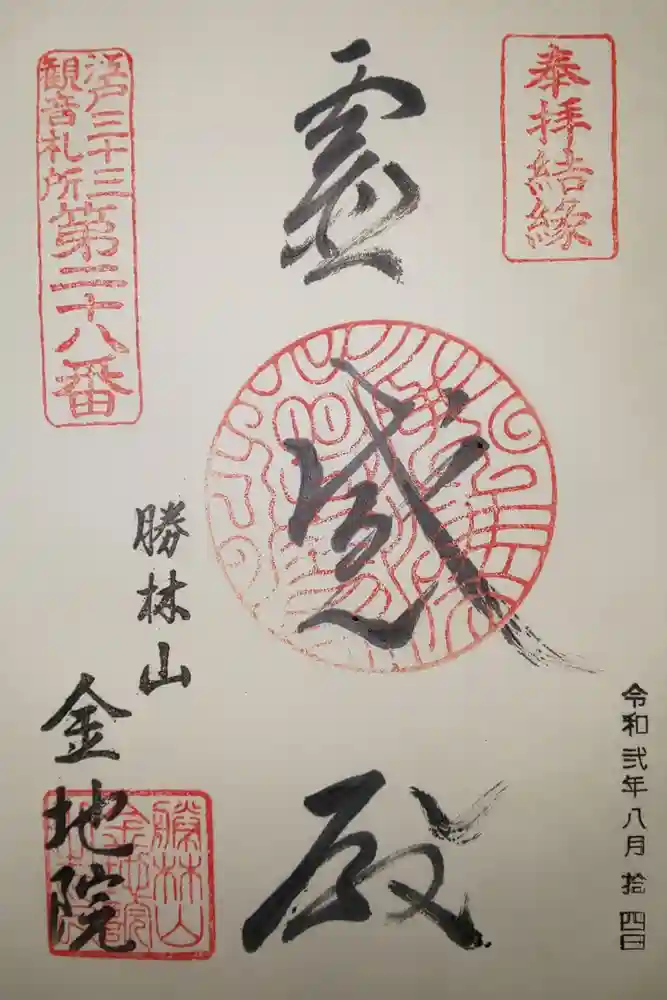 奉拝結縁
令和弐年八月拾四日
霊感殿
江戸三十三
観音札所
第二十八番
勝林山
金地院
勝林山
金地院